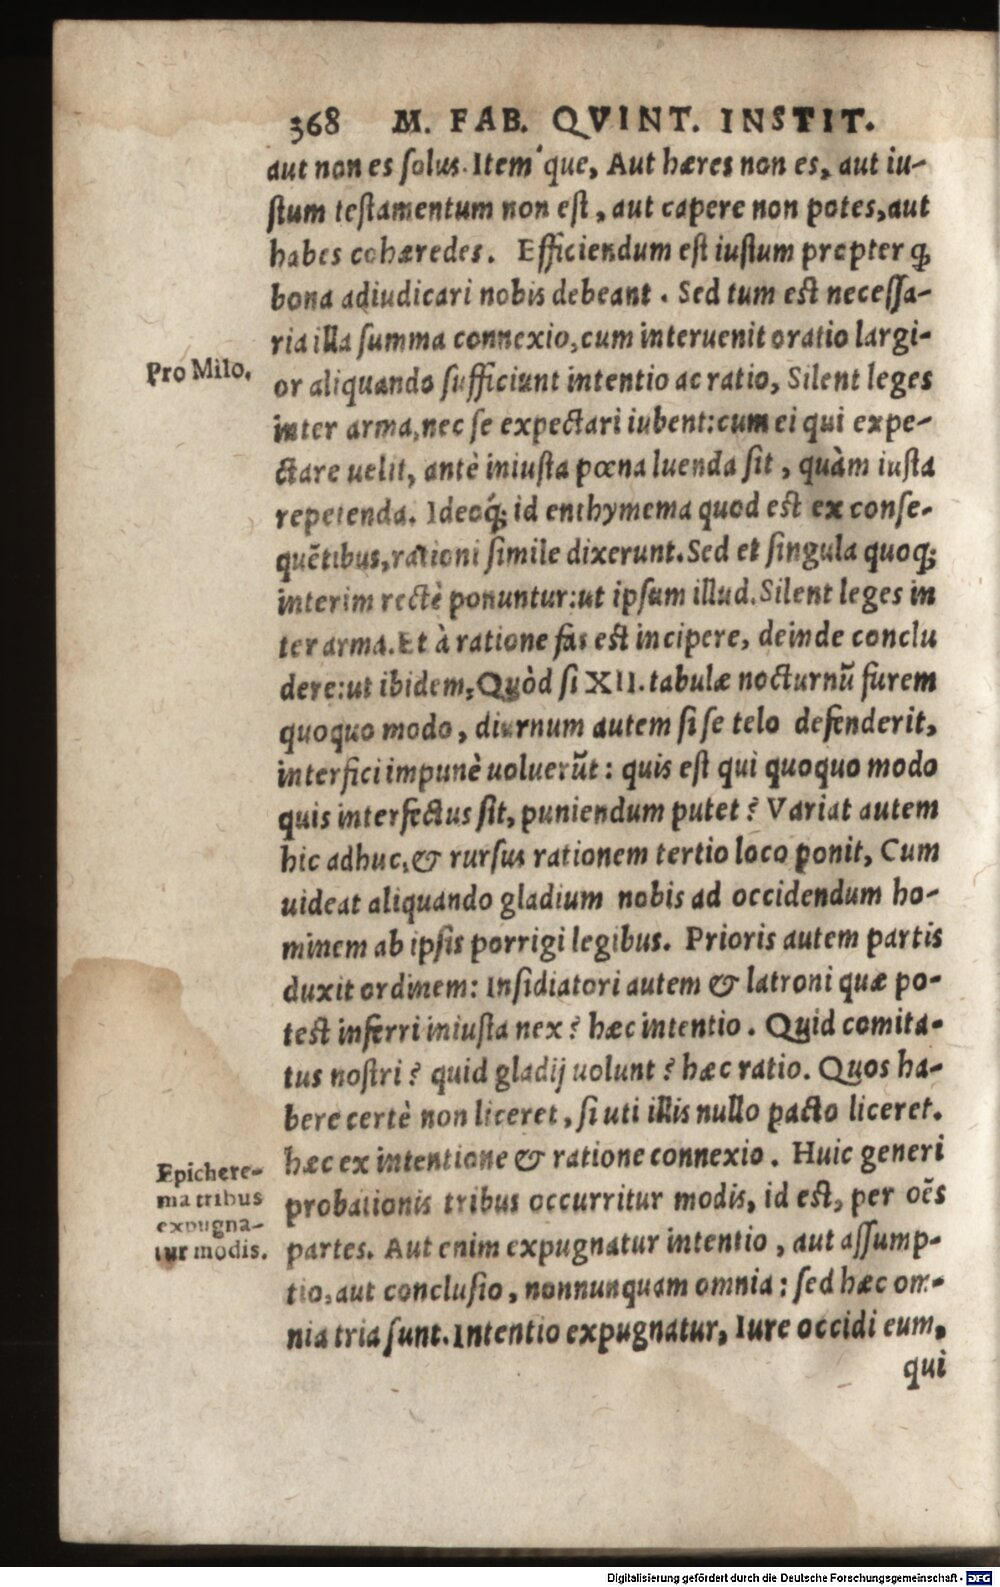 368 M. FAB. QVINT. INSTIT.
aut non es solus. Item'que, Aut hæres non es, aut iu-
stum testamentum non est, aut capere non potes, aut
habes cohæredes. Efficiendum est iustum propter ꝙ
bona adiudicari nobis debeant. Sed tum est necessa-
ria illa summa connexio, cum interuenit oratio largi-
Pro Milo.
or aliquando sufficiunt intentio ac ratio, Silent leges
inter arma, nec se expectari iubent: cum ei qui expe-
ctare uelit, antè iniusta pœna luenda sit, quàm iusta
repetenda. Ideoq́; id enthymema quod est ex conse-
quẽtibus, rationi simile dixerunt. Sed et singula quoq;
interim rectè ponuntur: ut ipsum illud. Silent leges in
ter arma. Et à ratione fas est incipere, deinde conclu
dere: ut ibidem, Quòd si XII. tabulæ nocturnũ furem
quoquo modo, diurnum autem si se telo defenderit,
interfici impunè uoluerũt: quis est qui quoquo modo
quis interfectus sit, puniendum putet? Variat autem
hic adhuc, & rursus rationem tertio loco ponit, Cum
uideat aliquando gladium nobis ad occidendum ho-
minem ab ipsis porrigi legibus. Prioris autem partis
duxit ordinem: Insidiatori autem & latroni quæ po-
test inferri iniusta nex? hæc intentio. Quid comita-
tus nostri? quid gladij uolunt? hæc ratio. Quos ha-
bere certè non liceret, si uti illis nullo pacto liceret.
hæc ex intentione & ratione connexio. Huic generi
Epichere-
ma tribus
expugna-
tur modis.
probationis tribus occurritur modis, id est, per oẽs
partes. Aut enim expugnatur intentio, aut assump-
tio, aut conclusio, nonnunquam omnia: sed hæc om-
nia tria sunt. Intentio expugnatur, Iure occidi eum,
qui
Digitalisierung gefördert durch die Deutsche Forschungsgemeinschaft - DFG